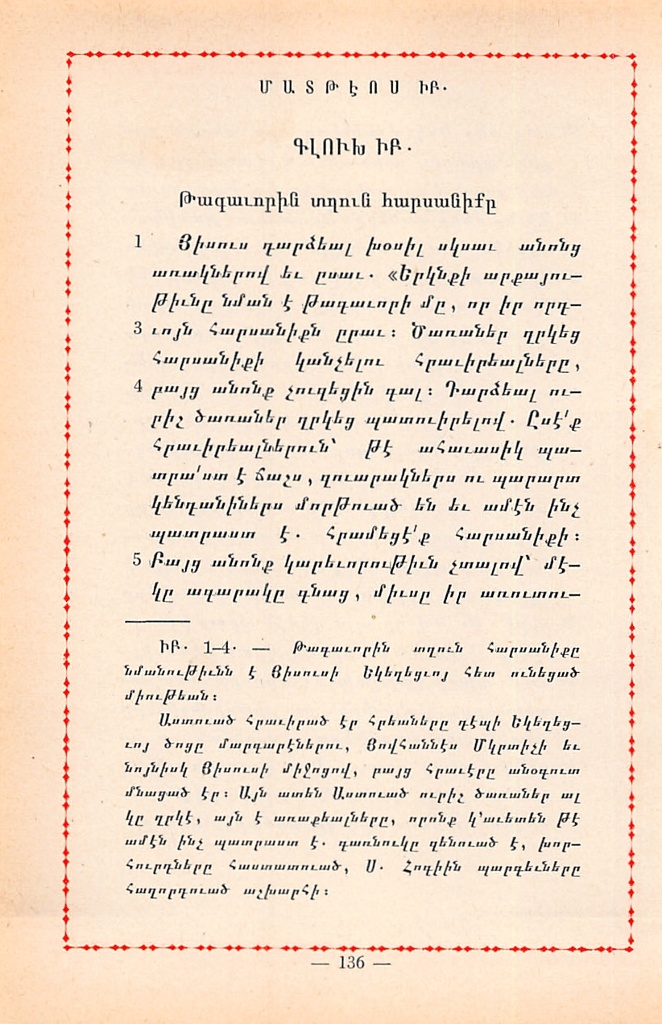 ՄԱՏԹԷՈՍ ԻԲ.
ԳԼՈՒԽ ԻԲ.
Թագաւորին տղուն հարսանիքը
1 Յիսուս դարձեալ խօսիլ սկսաւ անոնց
առակներով եւ ըսաւ. «Երկնքի արքայու—
թիւնը նման է թագաւորի մը, որ իր որդ—
3 ւոյն հարսանիքն ըրաւ։ Ծառաներ ղրկեց
հարսանիքի կանչելու հրաւիրեալները,
4 բայց անոնք չուզեցին գալ։ Դարձեալ ու—
րիշ ծառաներ ղրկեց պատուիրելով. Ըսէ՛ք
հրաւիրեալներուն՝ թէ ահաւասիկ պա—
տրա՛ստ է ճաշս, զուարակներս ու պարարտ
կենդանիներս մորթուած են եւ ամէն ինչ
պատրաստ է. Հրամեցէ՛ք հարսանիքի։
5 Բայց անոնք կարեւորութիւն չտալով՝ մէ—
կը ագարակը գնաց, միւսը իր առուտու—
ԻԲ. 1—4. — Թագաւորին տղուն հարսանիքը
նմանութիւնն է Յիսուսի Եկեղեցւոյ հետ ունեցած
միութեան։
Աստուած հրաւիրած էր հրեաները դէպի Եկեղեց—
ւոյ ծոցը մարգարէներու, Յովհաննէս Մկրտիչի եւ
նոյնիսկ Յիսուսի միջոցով, բայց հրաւէրը անօգուտ
մնացած էր։ Այն ատեն Աստուած ուրիշ ծառաներ ալ
կը ղրկէ, այն է առաքեալները, որոնք կ՚աւետեն թէ
ամէն ինչ պատրաստ է. գառնուկը զենուած է, խոր—
հուրդները հաստատուած, Ս. Հոգիին պարգեւները
հաղորդուած աշխարհի։
— 136 —